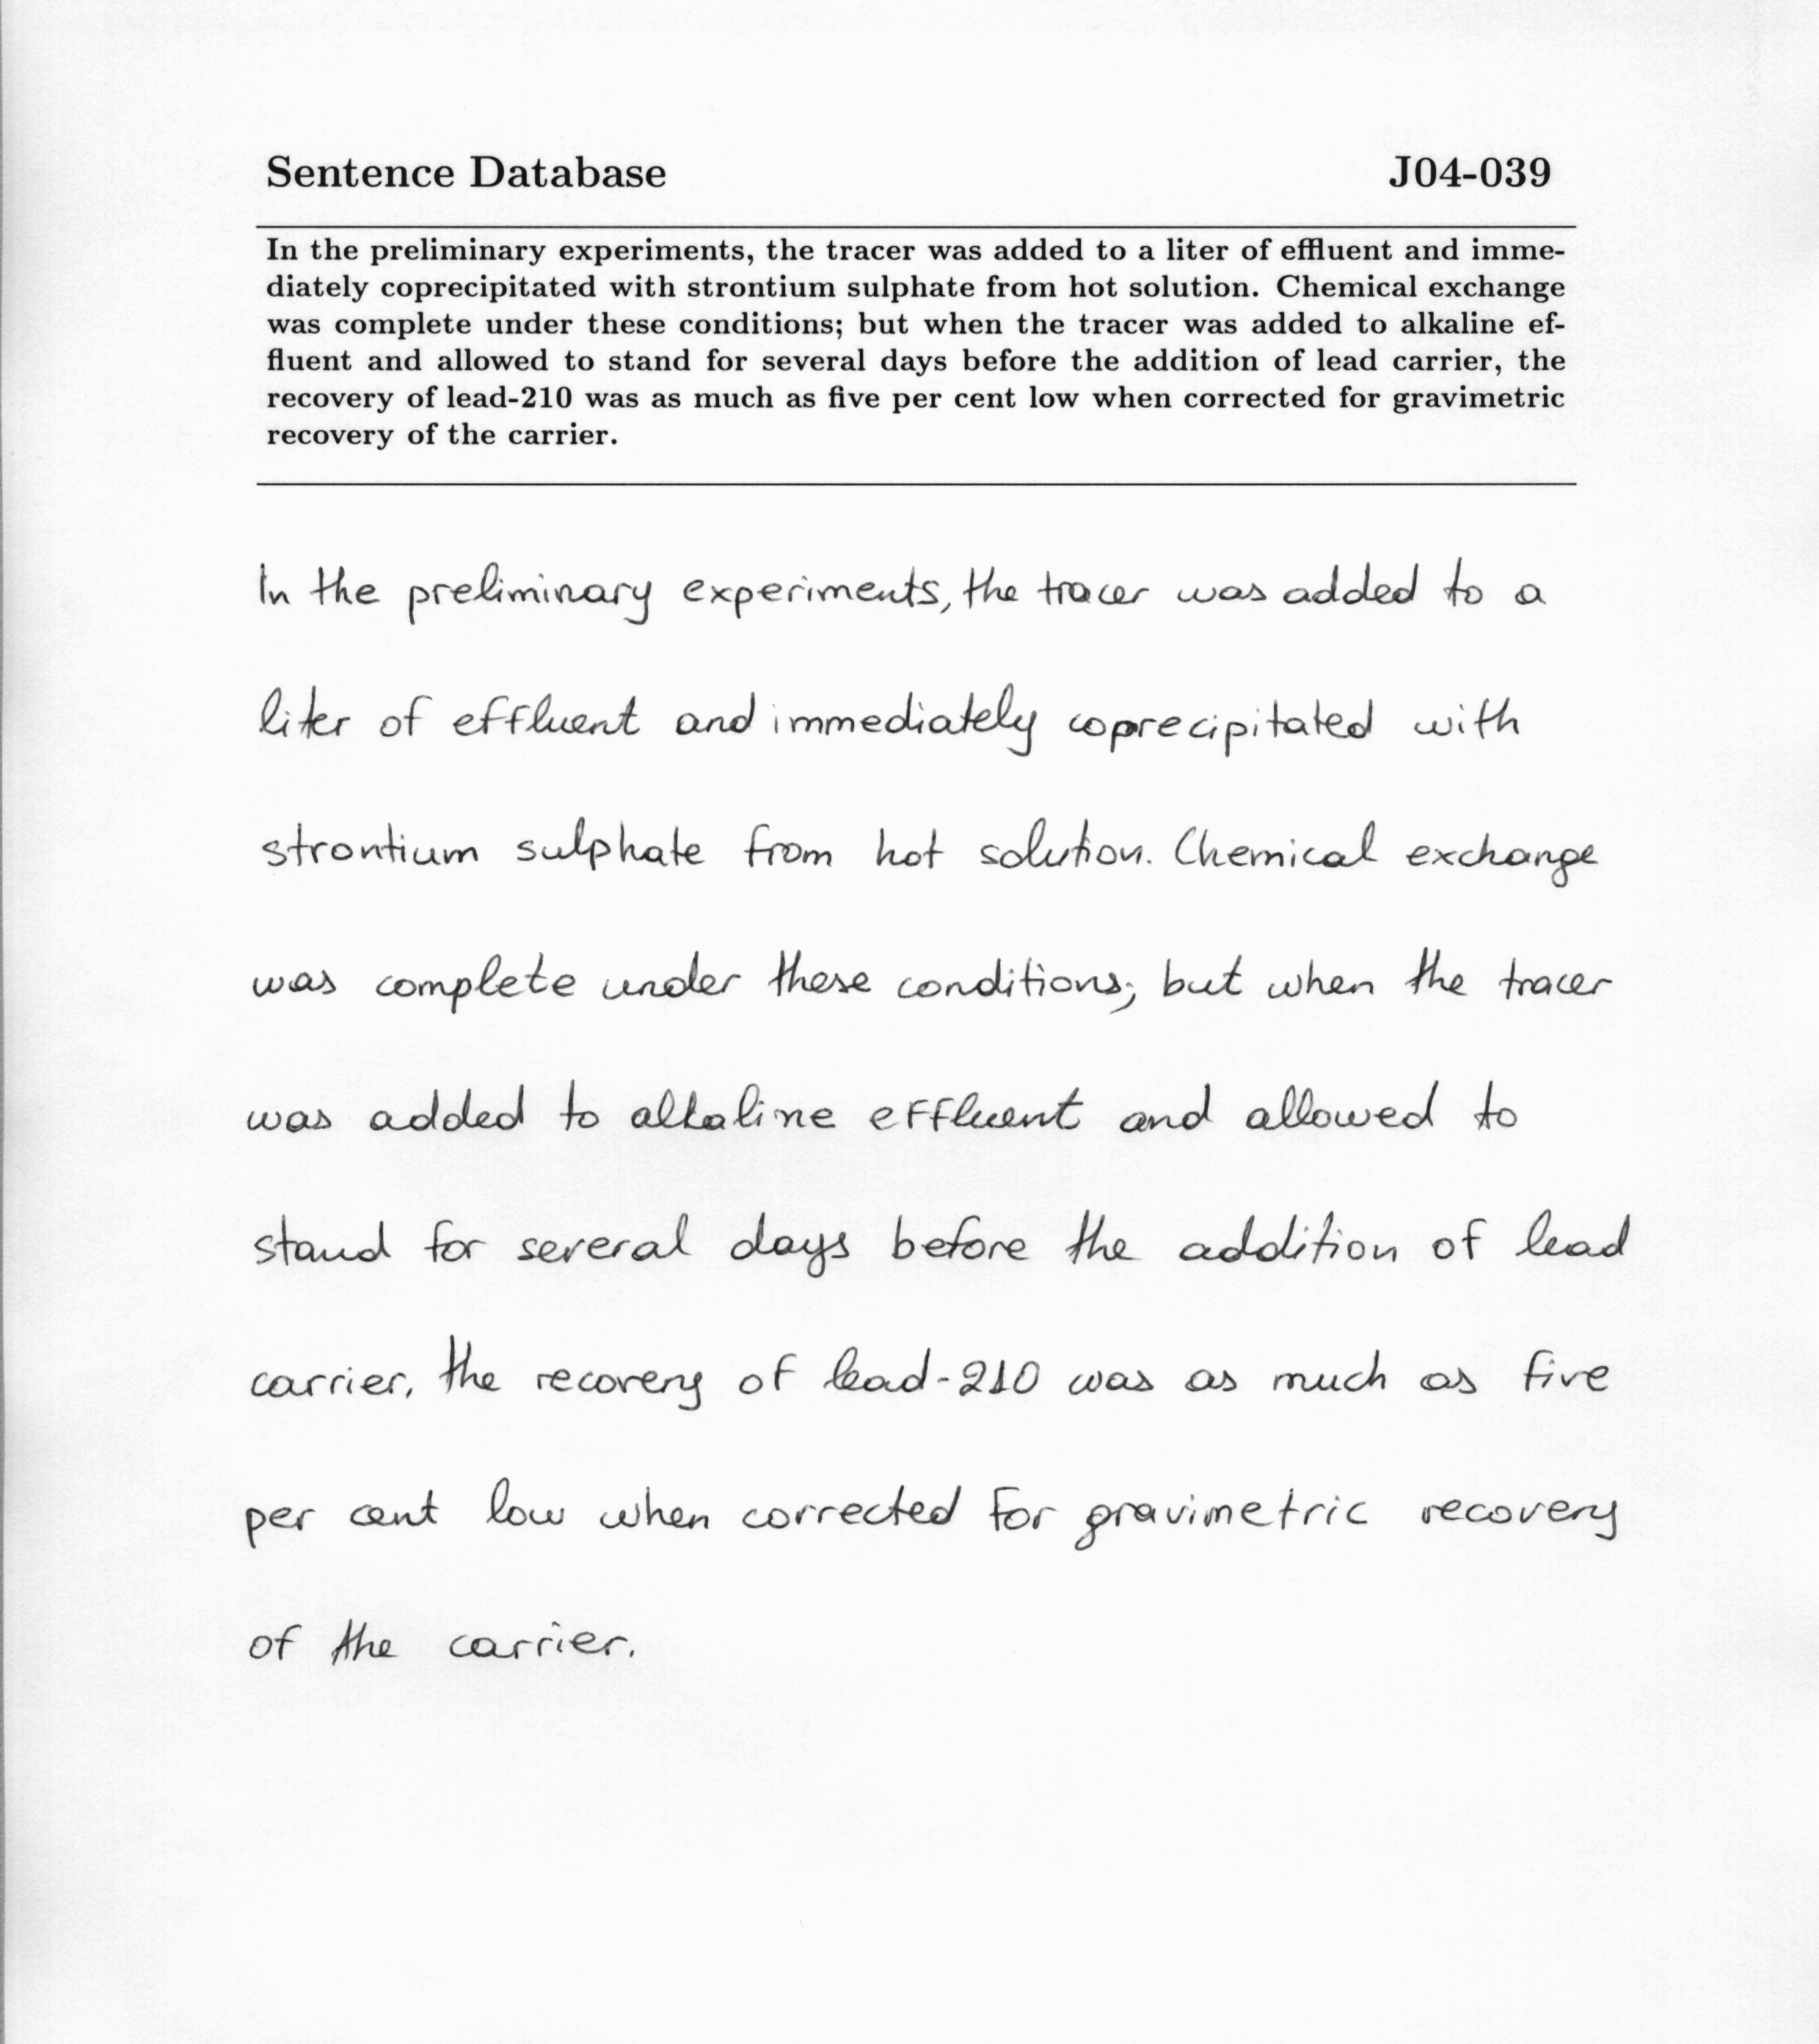 Sentence Database J04-039
In the preliminary experiments, the tracer was added to a liter of effluent and imme-
diately coprecipitated with strontium sulphate from hot solution. Chemical exchange
was complete under these conditions; but when the tracer was added to alkaline ef-
fluent and allowed to stand for several days before the addition of lead carrier, the
recovery of lead-210 was as much as five per cent low when corrected for gravimetric
recovery of the carrier.
In the preliminary experiments, the tracer was added to a
liter of effluent and immediately coprecipitated with
strontium sulphate from hot solution. Chemical exchange
was complete under these conditions; but when the tracer
was added to alkaline effluent and allowed to
stand for several days before the addition of lead
carrier, the recovery of lead-210 was as much as five
per cent low when corrected for gravimetric recovery
of the carrier.